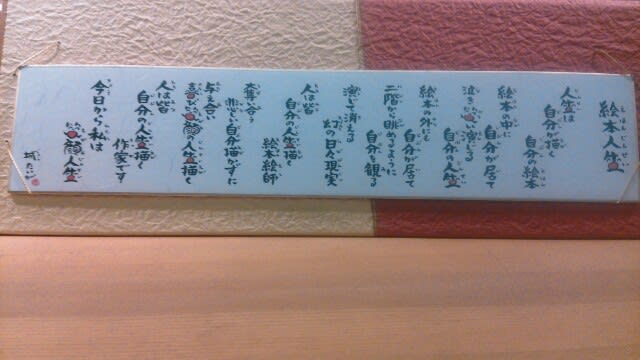 絵本人生
人生は
自分が描く
自分の絵本
絵本の中に
自分が居て
泣き笑い演じる
自分の人生
絵本の外にも
自分が居て
二階から眺めるように
自分を観る
演じて消える
幻の日々現実
人は皆
自分の人生描く
絵本絵師
奪い合う
悲しい自分描かずに
与え合い
喜びの笑顔人生描く
人は皆
自分の人生描く
作家です
今日から私は
笑顔人生